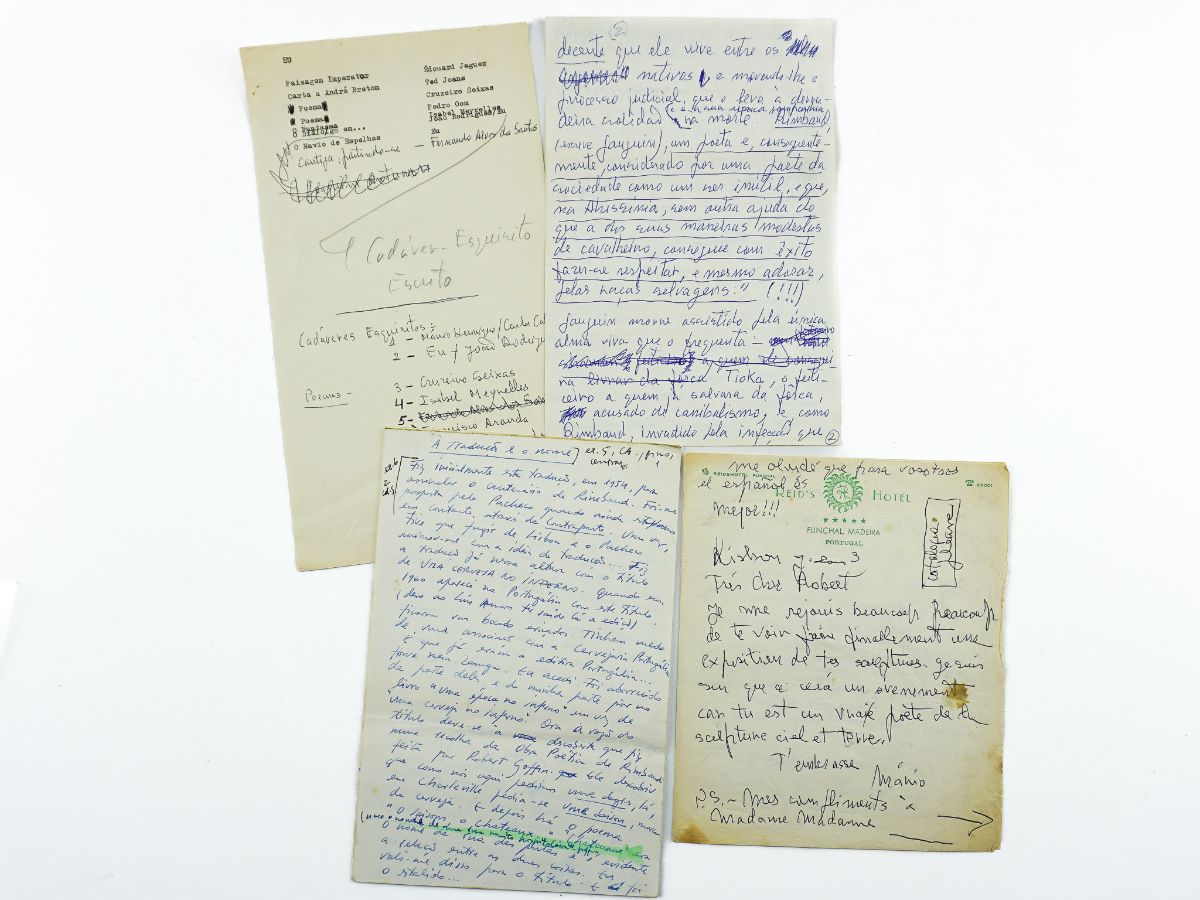 EU
Paisagem Imperator
Édouard Jaguer
Carta a André Breton
Ted Joans
Poema
Cruzeiro Seixas
Poema
Pedro Oom
O Fantasma
Isabel Meyrelles
O Diálogo em...
João Rodrigues/Eu
O Navio de Espelhos
Eu
Cantiga, partindo-se — Fernando Alves dos Santos
Cadáver-Esquisito
Escrito
Cadáveres Esquisitos:
1 — Mário Henrique/Carlos
2 — Eu + João Rodrigue
3 — Cruzeiro Seixas
Poemas —
4 — Isabel Meyrelles
5 —
Aranda
2
decente que ele vive entre os
nativos, e movendo-lhe o
processo judicial, que o leva à derra-
deira crolidad
na morte. "Rimbaud,
(escreve Gauguin), um poeta e, consequente-
mente, considerado por uma parte da
sociedade como um ser inútil, e que,
na Abissínia, sem outra ajuda do
que a das suas maneiras modestas
de cavalheiro, consegue com êxito
fazer-se respeitar, e mesmo adorar,
pelas raças selvagens." (!!!)
Gauguin morre assistido pela única
alma viva que o frequenta —
a quem de consegui
na livrar da forca Tioka, o feiti-
ceiro a quem já salvara da forca,
acusado de canibalismo, e como
Rimbaud, invadido pela infecção que
2
A Tradução e o nome
Fiz inicialmente esta tradução, em 1954, para
assinalar o Centenário de Rimbaud. Foi-me
proposta pelo Pacheco quando ainda estávamos
em contacto, através da Contraponto. Uma vez,
tive que fugir de Lisboa e o Pacheco
animou-me com a ideia da tradução... Fiz
a tradução já nessa altura com o título
de UMA CERVEJA NO INFERNO. Quando em
1960 apareci na Portugália com este título
ficaram um bocado eriçados. Tinham medo
de uma associação com a Cervejaria Portugália
é que já eram a editora Portugália...
houve meia zanga. Eu acedi. Foi aborrecido
da parte deles e da minha parte pôr no
livro "uma época no inferno" em vez de
"uma cerveja no inferno". Ora a razão do
título deve-se a descoberta que fiz
numa recolha da Obra Poética de Rimbaud
feita por Robert Goffin. Ele descobriu
que como nós aqui pedimos uma
em Charleville pedia-se Une saison, numa
cerveja. E depois há o poema
"O saisons, o chateaux,"
o nome da rua das putas e é evidente
a relação entre as duas coisas. Eu
vali-me disso para o título. E foi
o sitalido...
me olvidé que para vosotros
el español es
mejor!!!
REIDSHOTEL FUNCHAL
REID'S HOTEL
FUNCHAL MADEIRA
PORTUGAL
23001
Lisbon
Très Cher Robert
Je me rejouis beaucoup beaucoup
de te voir faire finallement une
exposition de tes sculptures. Je suis
sur que ce cerá un evenement
car tu est un vraie poète de la
sculpture ciel et terre.
T'embrasse
Mário
P.S. — Mes compliments a
Madame Madame